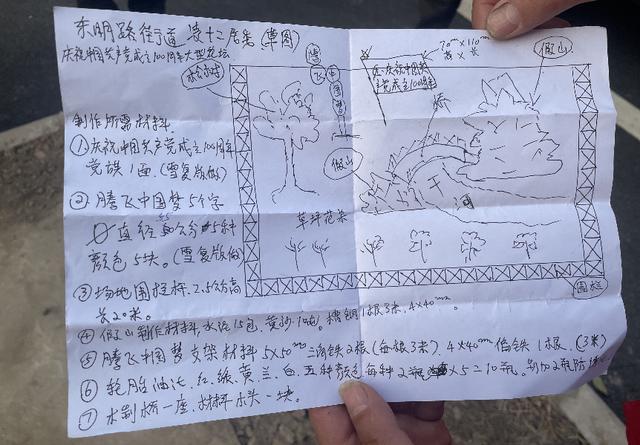 东明路街道凌十二居委(草图)
庆祝中国共产党成立100周年大型花坛
制作所需材料
①庆祝中国共产党成立100周年
党旗1面(雪复版做)
②腾飞中国梦5个字
直径50公分5种
颜色5块。(雪复版做)
③场地围栏杆、2.5公分高
长20米。
④假山制作材料水泥15包、黄沙1吨。槽钢1根3米、4×40mm
⑤腾飞中国梦支架材料5×50mm三角铁2根(每根3米)4×40mm伯铁1根、(3米)
⑥轮胎油漆、红、绿、黄、兰、白、五种颜色每种2瓶×5=10瓶。另加2瓶防
⑦木制桥一座、木一块。
腾
飞
中
国
梦
70mm×110mm
高 × 长
庆祝中国共
产党成立100周年
假山
桥
假山
小
河
草坪花朵
围栏